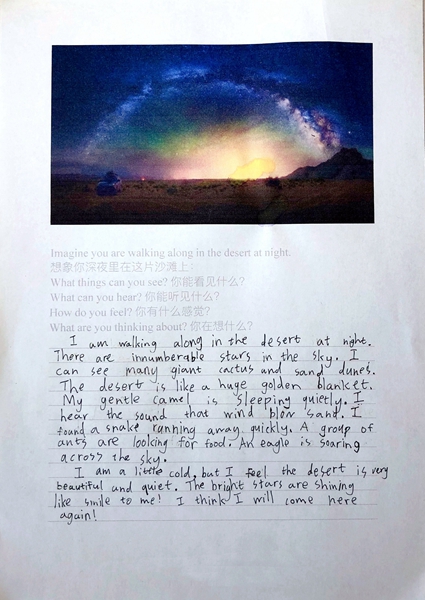 Imagine you are walking along in the desert at night.
想象你深夜里在这片沙滩上:
What things can you see? 你能看见什么?
What can you hear? 你能听见什么?
How do you feel? 你有什么感觉?
What are you thinking about? 你在想什么?
I am walking along in the desert at night.
There are innumberable stars in the sky. I
can see many giant cactus and sand dunes.
The desert is like a huge golden blanket.
My gentle camel is sleeping quietly. I
hear the sound that wind blow sand. I
found a snake running away quickly. A group of
ants are looking for food. An eagle is soaring
across the sky.
I am a little cold, but I feel the desert is very
beautiful and quiet. The bright stars are shining
like smile to me! I think I will come here
again!